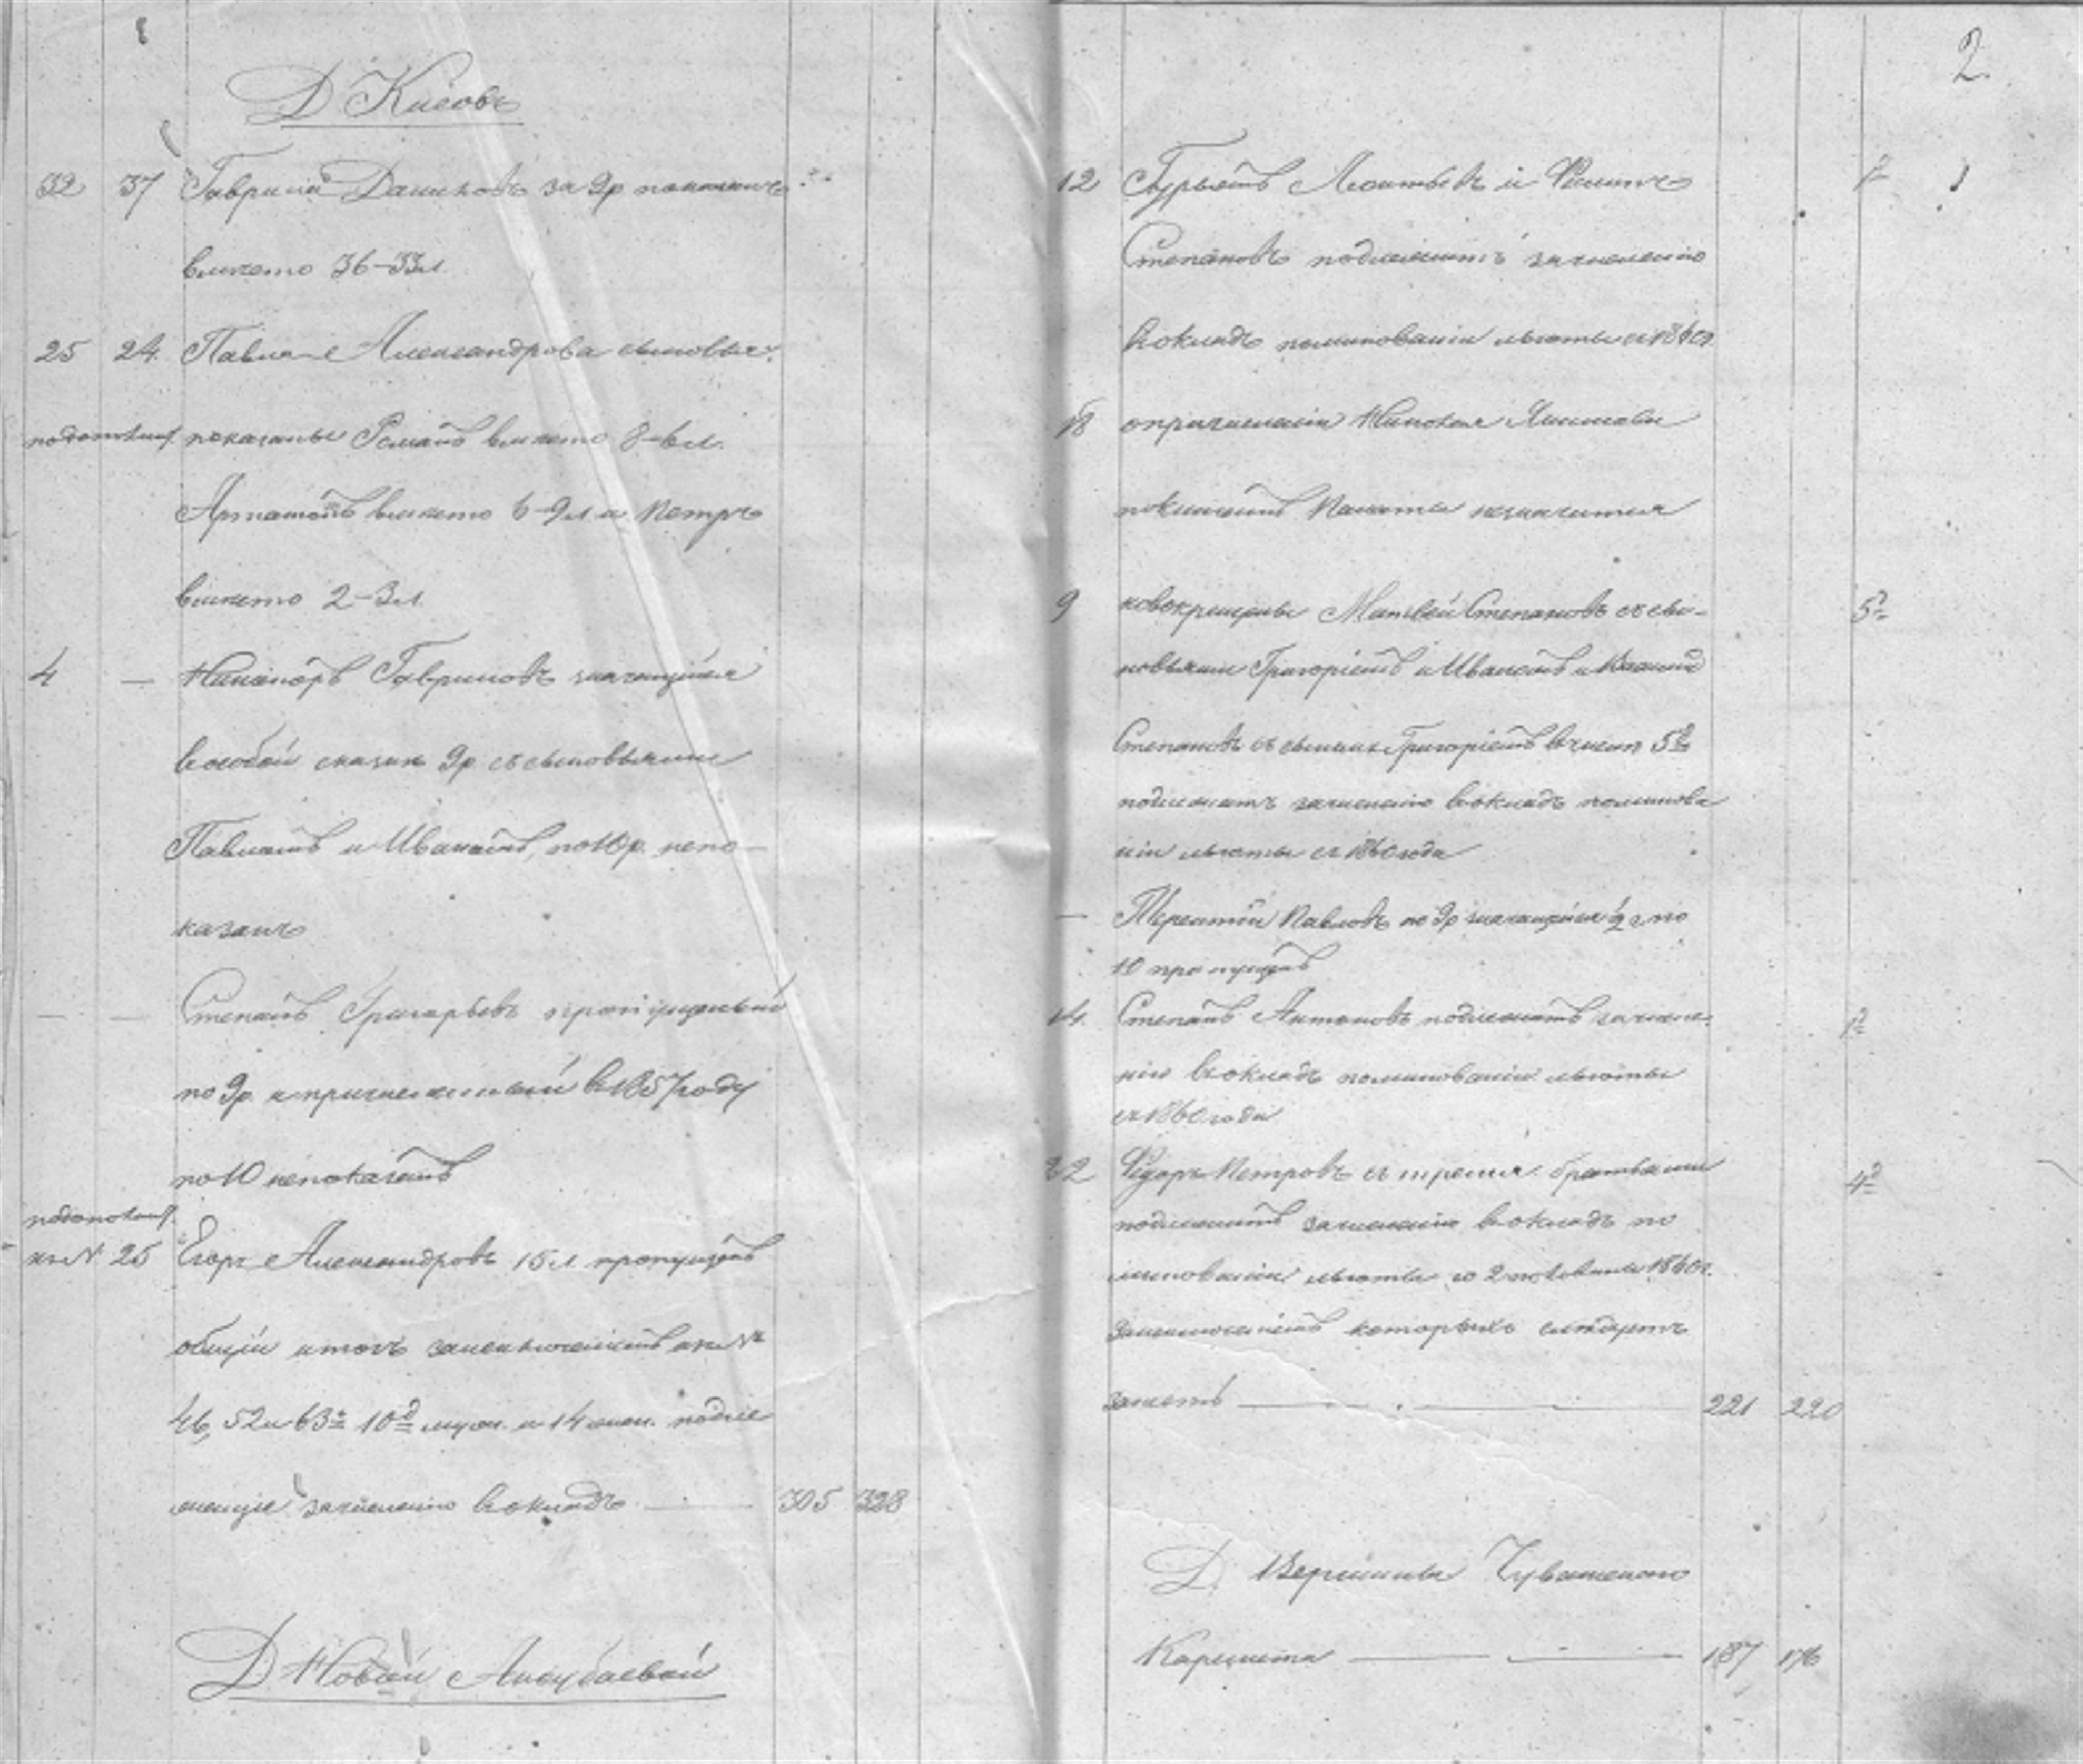 Д Кисовъ
32 37 Гаврила Даниловъ за 9р показанъ
вместо 36-33 л.
25 24 Павла Александрова сыновья
показаны Романъ вместо 8-6 л.
вместо 6-9 л. и Петръ
вместо 2-3 л.
4 — Никаноръ Гавриловъ значущійся
в особой сказкѣ 9р. съ сыновьями
Павломъ и Иваномъ, по 10р. непо-
казанъ
— — Степанъ Григорьевъ пропущенный
по 9р. и причисленный в 1857 году
по 10 непоказанъ
25 Егоръ Александровъ 15 л. пропущенъ
общій итогъ заисключеніемъ
46, 52 и 63 10д муж. и 14 жен. подле
жащіе зачисленію в окладъ — 305 328
Д Новой Аксубаевой
2.
12 Леонтьевъ и Филипъ
Степановъ подлежитъ зачисленію
в окладъ поминованіи льготы съ 1860 г.
18 опричисленіи Николая
Палаты незначится
9 новокрещены Матвей Степановъ съ сы-
новьями Григоріемъ и Иваномъ и
Степановъ съ сыномъ Григоріемъ в числѣ 5д
подлежатъ зачисленію в окладъ поминова
ніи льготы съ 1860 года
— Терентій Павловъ по 9р значущійся 1/2 г по
10 пропущенъ
14. Степанъ Антоновъ подлежитъ зачисле-
нію в окладъ поминованіи льготы
съ 1860 года
32 Федоръ Петровъ съ тремя братьями
подлежитъ зачисленію в окладъ по
минованіи льготы со 2 половины 1860 г.
заисключеніемъ которыхъ слѣдуетъ
— 221 220
Д. Вершины Чувашскаго
— 187 176